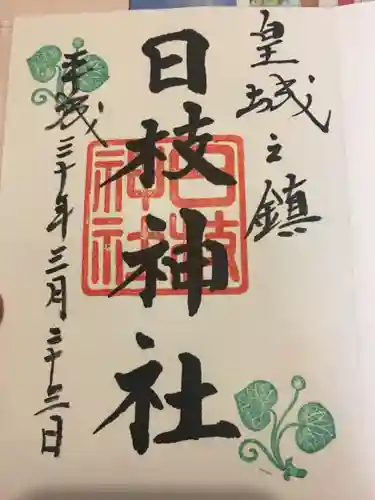 皇城之鎮
日枝神社
日枝神社
平成三十年三月二十三日